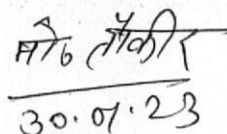 मो० तौकीर
30.07.23